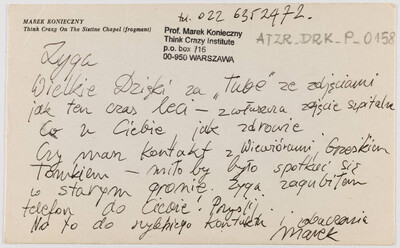 tel. 022 6352472.
MAREK KONIECZNY
Think Crazy On The Sistine Chapel (fragment)
Prof. Marek Konieczny
Think Crazy Institute
p.o. box 716
00-950 WARSZAWA
ATZR_DRK_P_0158
Zyga
Wielkie Dzięki za „Tubę" ze zdjęciami
jak ten czas leci – zwłaszcza zdjęcie szpitalne
Co u Ciebie jak zdrowie
Czy masz kontakt z Wiewiórami, Grześkiem
Tomkiem – miło by było spotkać się
w starym gronie. Zyga zagubiłem
telefon do Ciebie! Przyślij.
No to do szybkiego kontaktu i zobaczenia
Marek